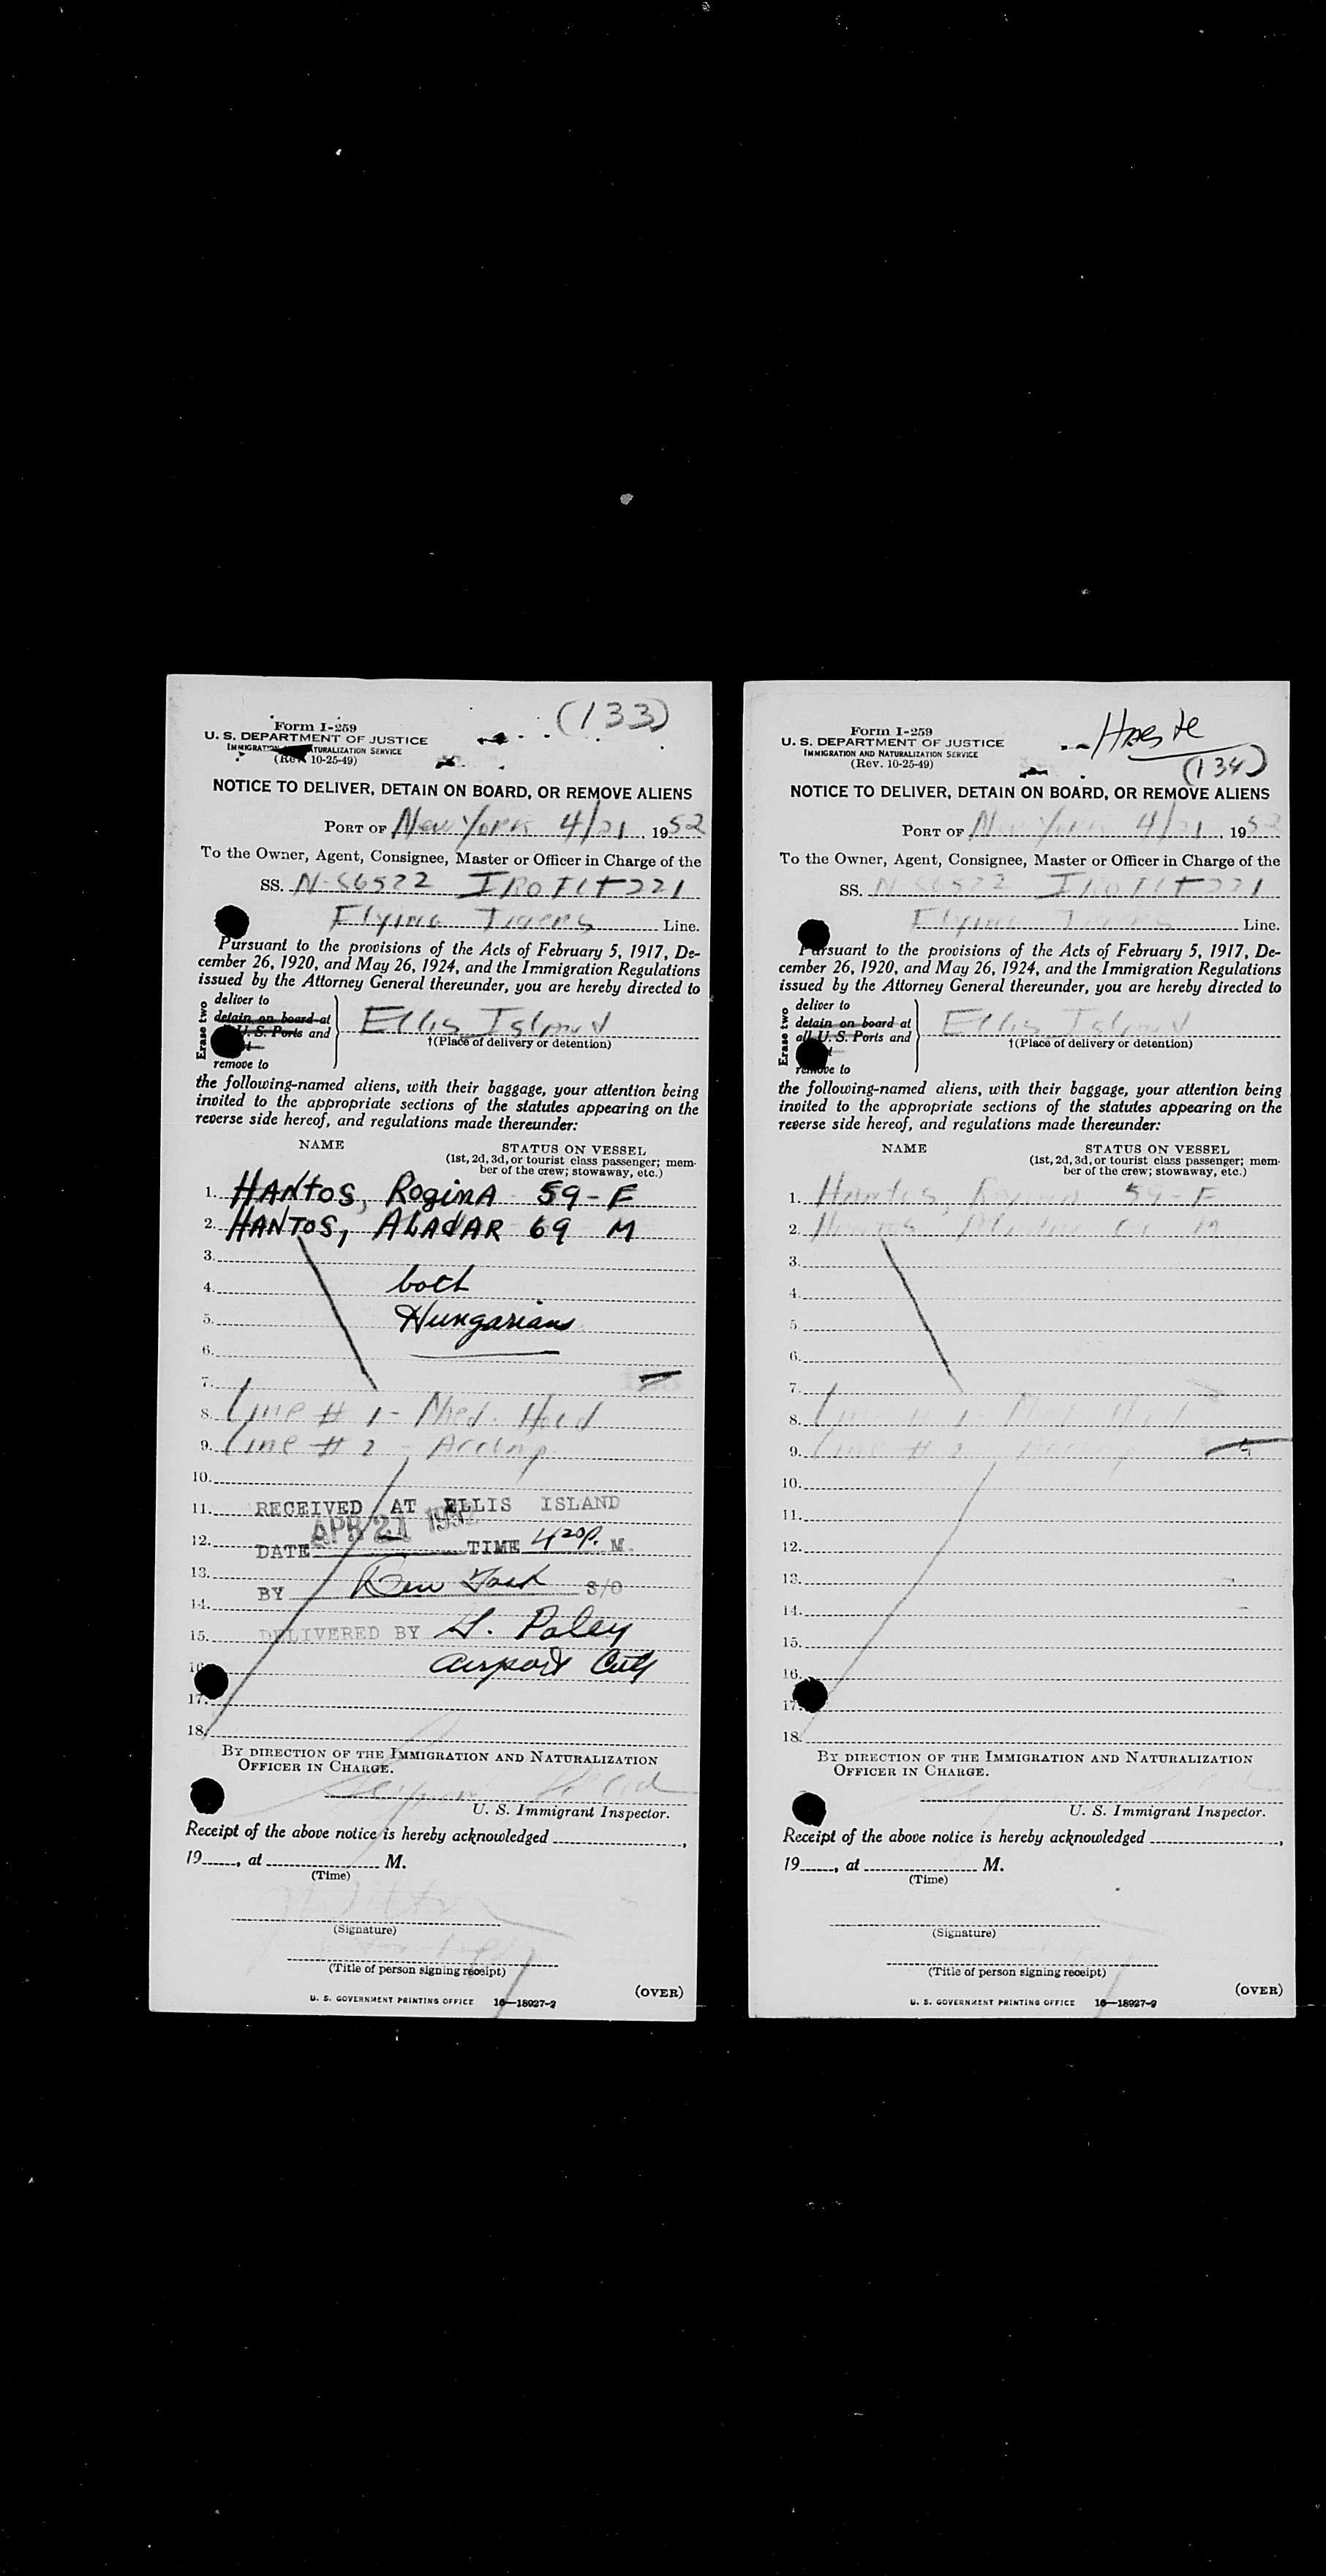 (133)
Form I-259
U. S. DEPARTMENT OF JUSTICE
IMMIGRATION NATURALIZATION SERVICE
(Rev. 10-25-49)
NOTICE TO DELIVER, DETAIN ON BOARD, OR REMOVE ALIENS
PORT OF New York 4/21, 1952
To the Owner, Agent, Consignee, Master or Officer in Charge of the
SS. N-S6522 IRO Flt 221
Flying Tigers Line.
Pursuant to the provisions of the Acts of February 5, 1917, De-
cember 26, 1920, and May 26, 1924, and the Immigration Regulations
issued by the Attorney General thereunder, you are hereby directed to
Erase two
deliver to
detain on board at
U. S. Ports and
remove to
Ellis Island
†(Place of delivery or detention)
the following-named aliens, with their baggage, your attention being
invited to the appropriate sections of the statutes appearing on the
reverse side hereof, and regulations made thereunder:
NAME STATUS ON VESSEL
(1st, 2d, 3d, or tourist class passenger; mem-
ber of the crew; stowaway, etc.)
1. HANtOS, RoginA 59 - F
2. HANTOS, ALADAR 69 M
3.
4. both
5. Hungarians
6.
7.
8. Line # 1 - Med. Hold
9. Line # 2 - Accomp
10.
11. RECEIVED AT ELLIS ISLAND
12. DATE APR 21 1952 TIME 4 20 P. M.
13. BY S/O
14.
15. DELIVERED BY Paley
16. airport
17.
18.
BY DIRECTION OF THE IMMIGRATION AND NATURALIZATION
OFFICER IN CHARGE.
U. S. Immigrant Inspector.
Receipt of the above notice is hereby acknowledged ,
19 , at M.
(Time)
(Signature)
(Title of person signing receipt)
(OVER)
U. S. GOVERNMENT PRINTING OFFICE 16—18927-2
(134)
Form I-259
U. S. DEPARTMENT OF JUSTICE
IMMIGRATION AND NATURALIZATION SERVICE
(Rev. 10-25-49)
NOTICE TO DELIVER, DETAIN ON BOARD, OR REMOVE ALIENS
PORT OF New York 4/21, 1952
To the Owner, Agent, Consignee, Master or Officer in Charge of the
SS. N S6522 IRO Flt 221
Flying Tigers Line.
Pursuant to the provisions of the Acts of February 5, 1917, De-
cember 26, 1920, and May 26, 1924, and the Immigration Regulations
issued by the Attorney General thereunder, you are hereby directed to
Erase two
deliver to
detain on board at
all U. S. Ports and
remove to
Ellis Island
†(Place of delivery or detention)
the following-named aliens, with their baggage, your attention being
invited to the appropriate sections of the statutes appearing on the
reverse side hereof, and regulations made thereunder:
NAME STATUS ON VESSEL
(1st, 2d, 3d, or tourist class passenger; mem-
ber of the crew; stowaway, etc.)
1. Hantos, 59 - F
2. Hantos M
3.
4.
5.
6.
7.
8. Line # 1 Med Hold
9. Line # 2 Accomp
10.
11.
12.
13.
14.
15.
16.
17.
18.
BY DIRECTION OF THE IMMIGRATION AND NATURALIZATION
OFFICER IN CHARGE.
U. S. Immigrant Inspector.
Receipt of the above notice is hereby acknowledged ,
19 , at M.
(Time)
(Signature)
(Title of person signing receipt)
(OVER)
U. S. GOVERNMENT PRINTING OFFICE 16—18927-2